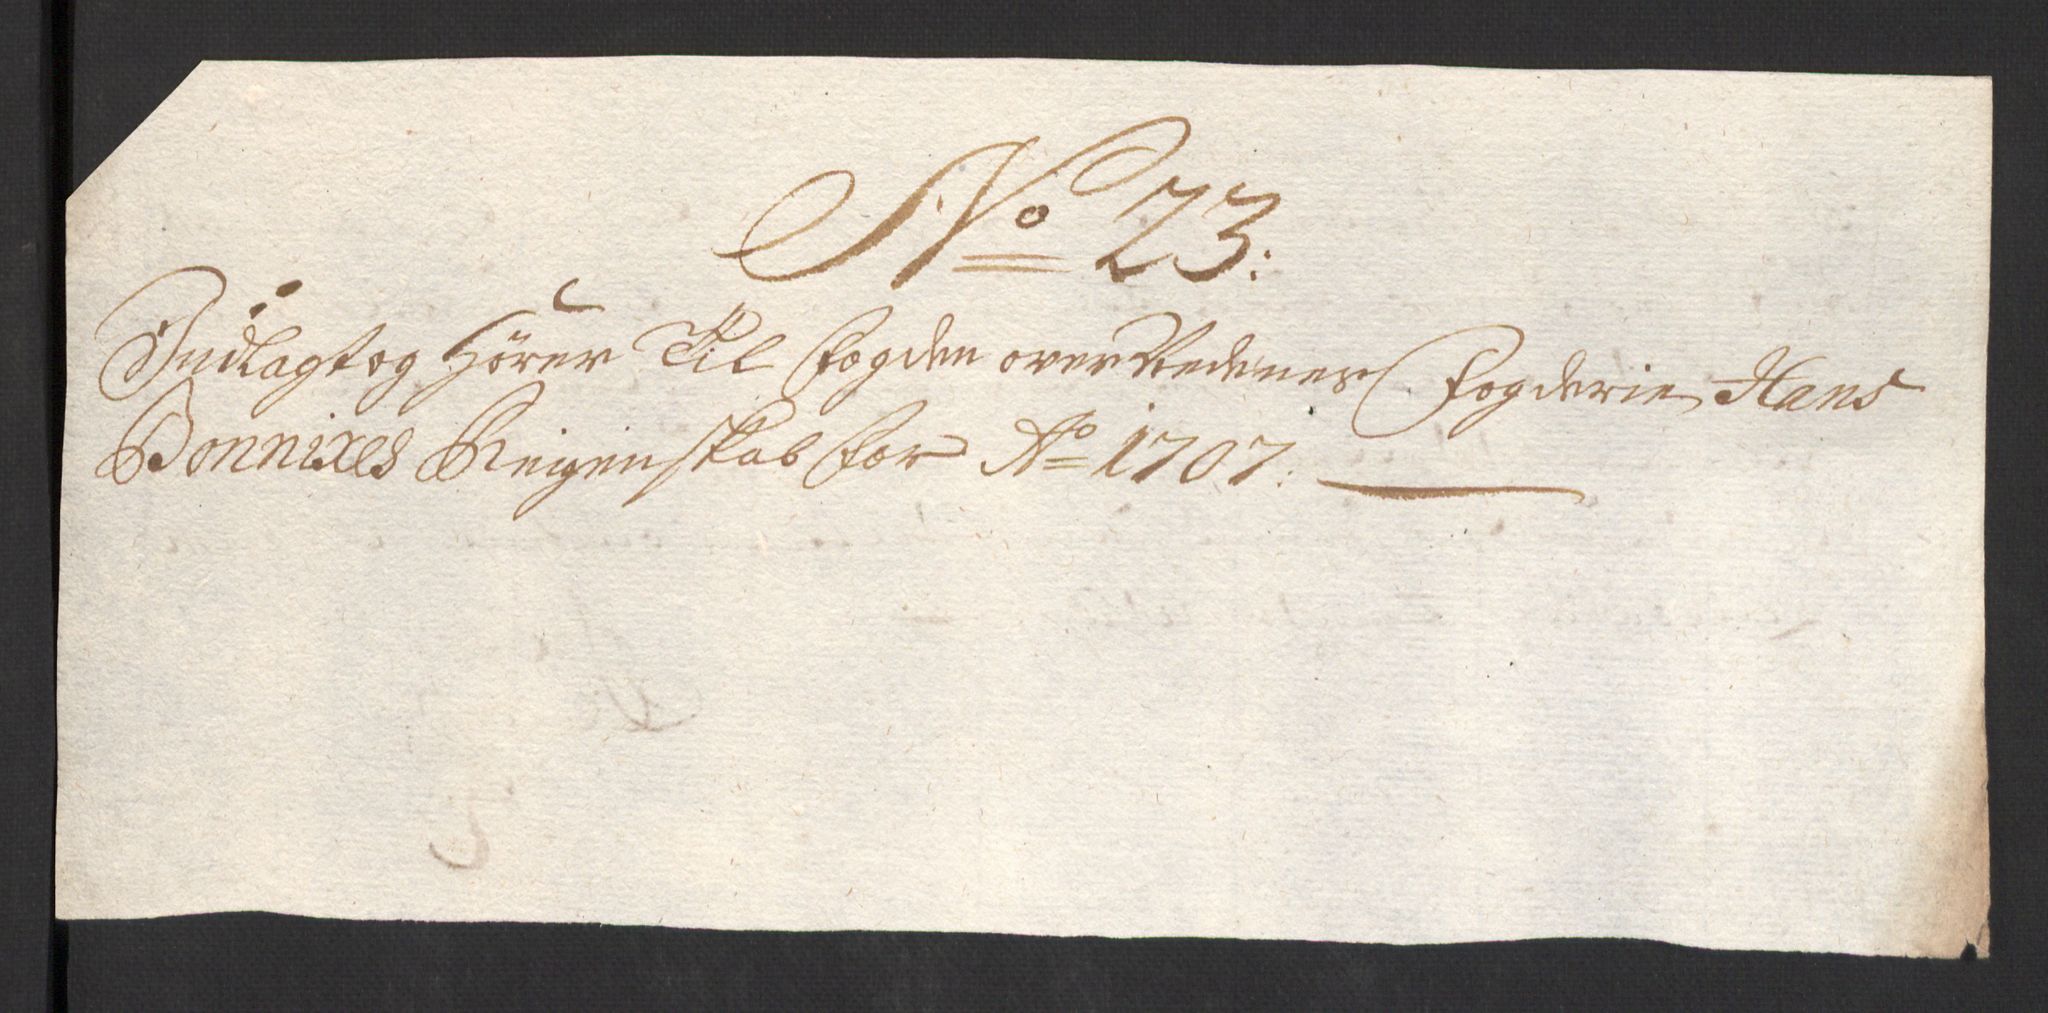 No 23:
Indlagt og hörer Til fogden over Nedenes fogderie Hans
Bonnixes Reigenskab for Ao 1707: